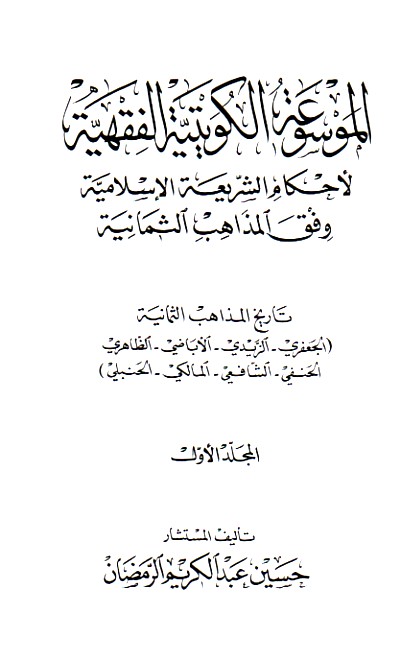 الموسوعة الكويتية الفقهية
لأحكام الشريعة الإسلامية
وفق المذاهب الثمانية
تاريخ المذاهب الثمانية
(الجعفري - الزيدي - الأباضي - الظاهري
الحنفي - الشافعي - المالكي - الحنبلي)
المجلد الأول
تأليف المستشار
حسين عبد الكريم الرمضان